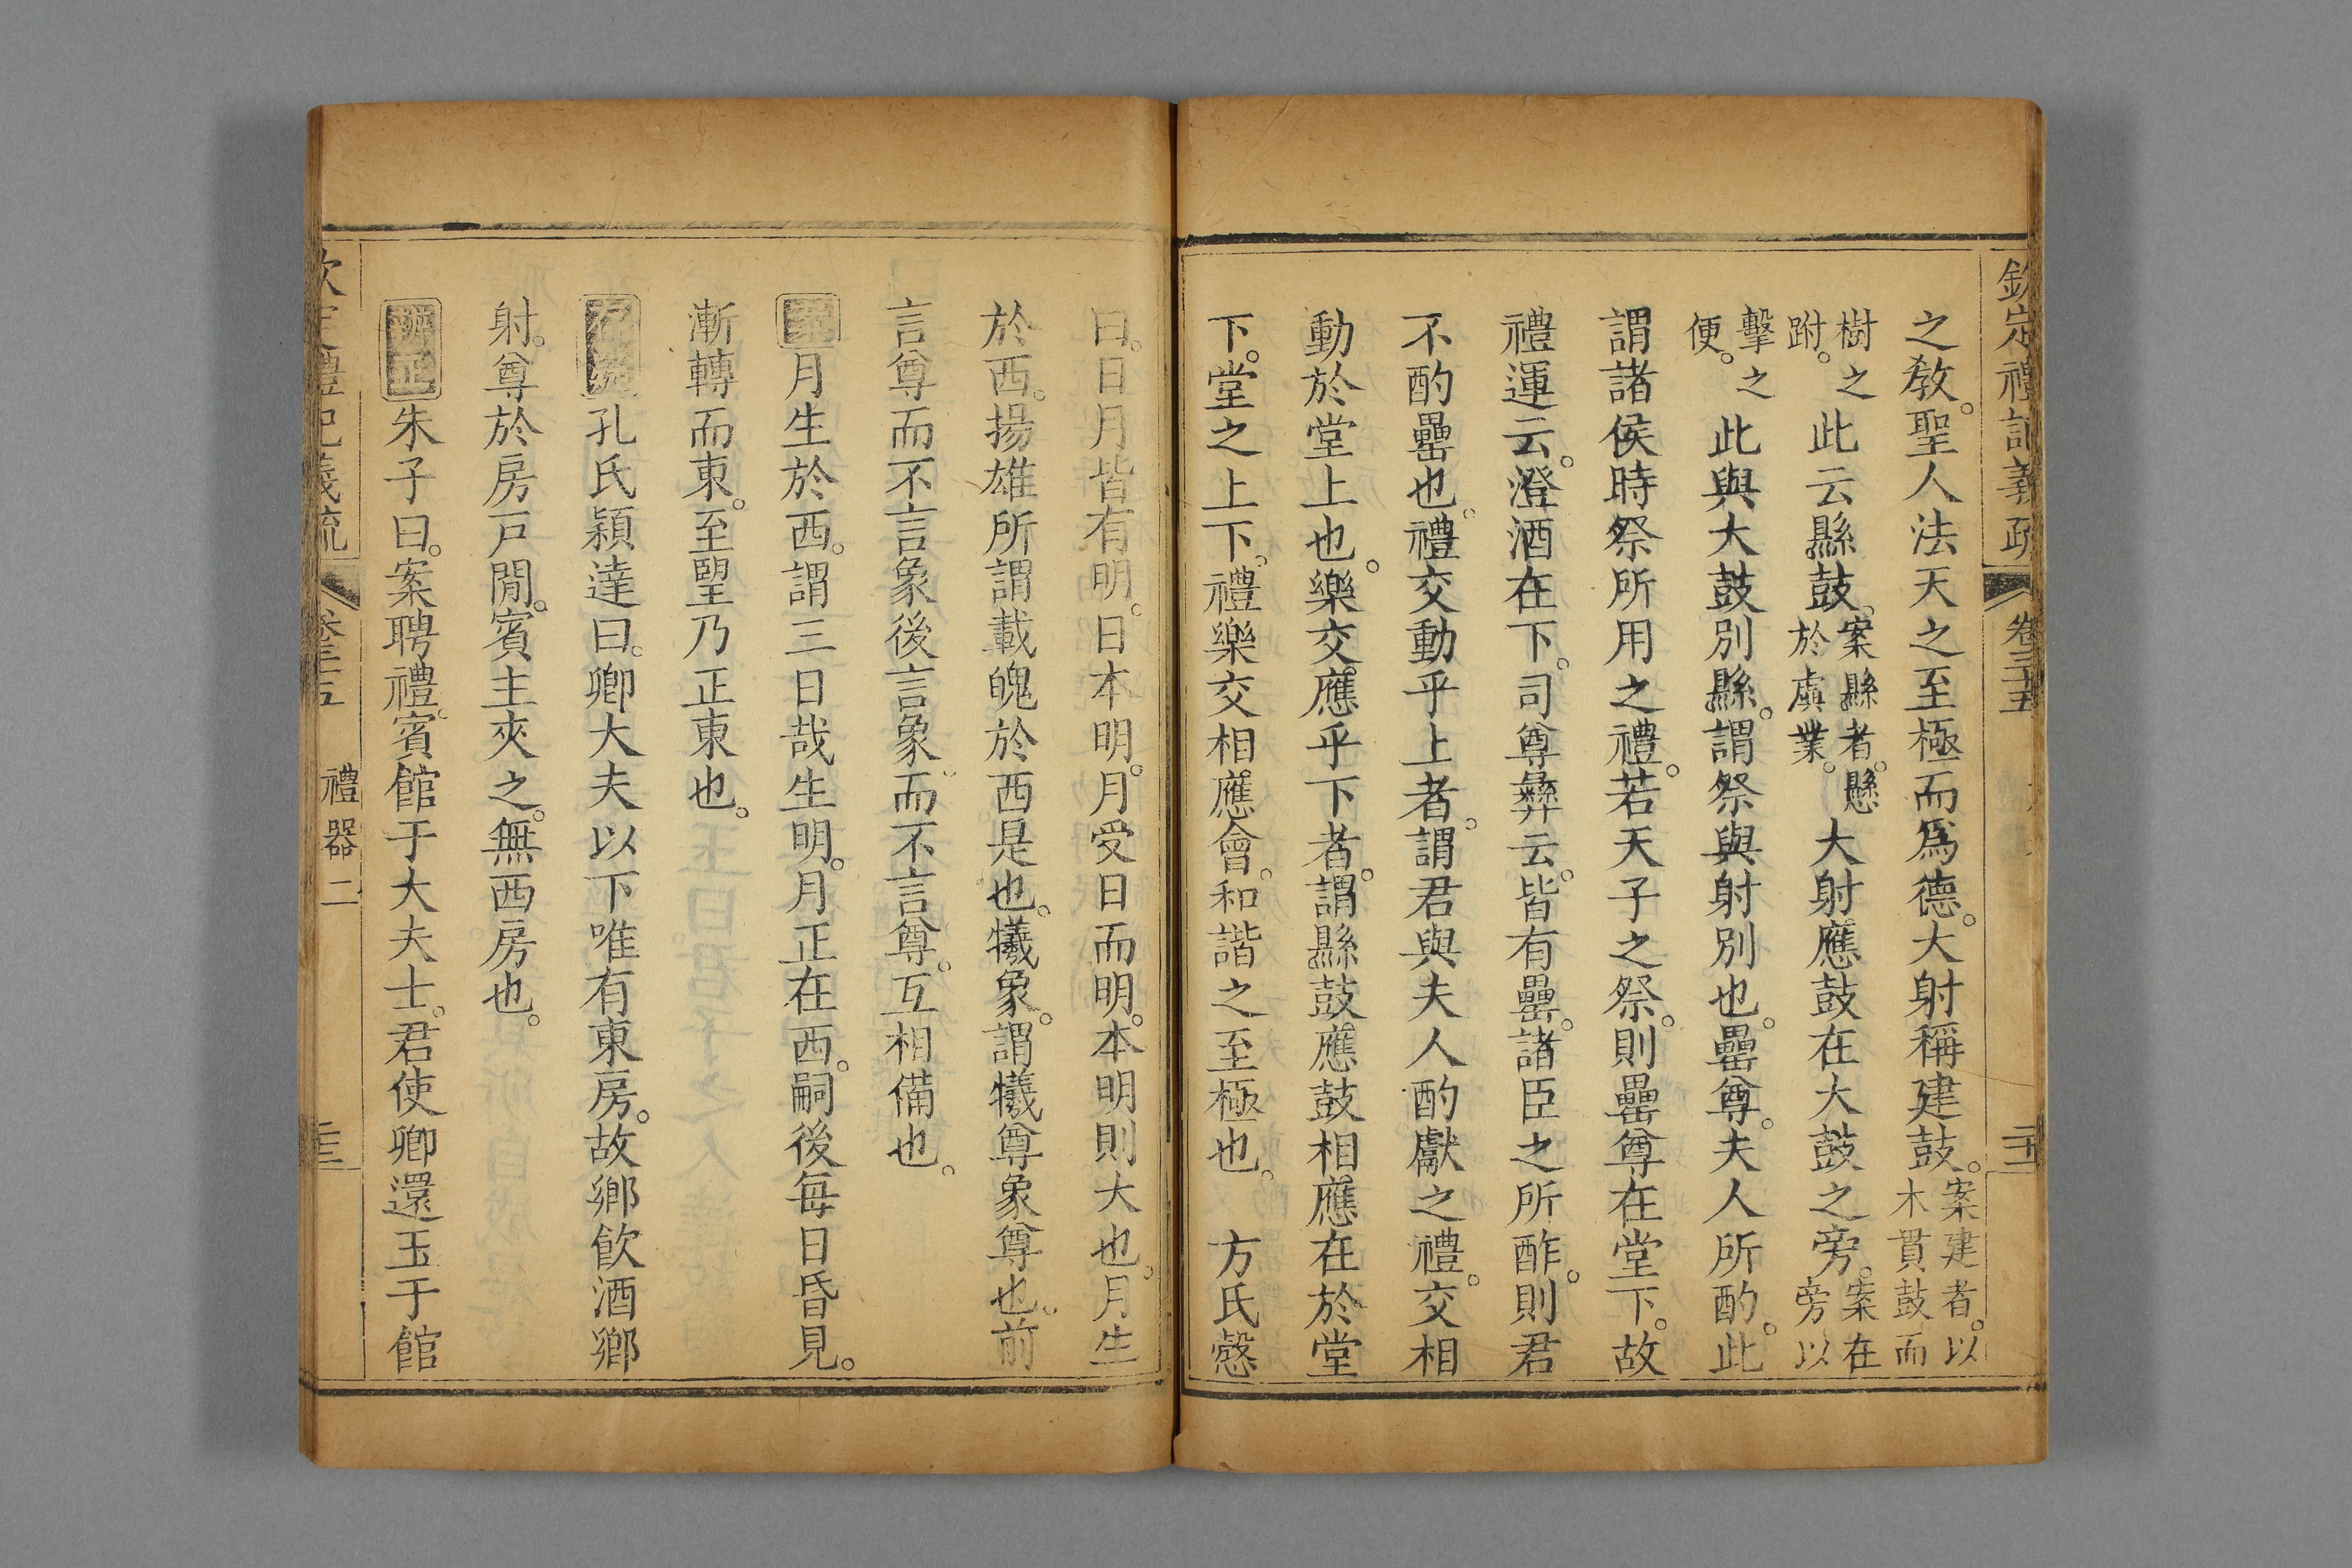 欽定禮記義疏 卷三十五
之敎。聖人法天之至極而爲德。大射稱建鼓。案建者。以木貫鼓而
樹之跗。此云縣鼓。案縣者。懸於虡業。大射應鼓在大鼓之旁。案在旁以
擊之便。此與大鼓別縣。謂祭與射別也。罍尊。夫人所酌。此
謂諸侯時祭所用之禮。若天子之祭。則罍尊在堂下。故
禮運云。澄酒在下。司尊彝云。皆有罍。諸臣之所酢。則君
不酌罍也。禮交動乎上者。謂君與夫人酌獻之禮。交相
動於堂上也。樂交應乎下者。謂縣鼓應鼓相應在於堂
下。堂之上下。禮樂交相應會。和諧之至極也。 方氏慤
曰。日月皆有明。日本明。月受日而明。本明則大也。月生
於西。揚雄所謂載魄於西是也。犧象。謂犧尊象尊也。前
言尊而不言象。後言象而不言尊。互相備也。
月生於西。謂三日哉生明。月正在西。嗣後每日昏見。
漸轉而東。至朢乃正東也。
孔氏穎達曰。卿大夫以下唯有東房。故鄉飮酒鄉
射。尊於房戸閒。賓主夾之。無西房也。
辨正 朱子曰。案聘禮。賓館于大夫士。君使卿還玉于館
欽定禮記義疏 卷三十五 禮器二